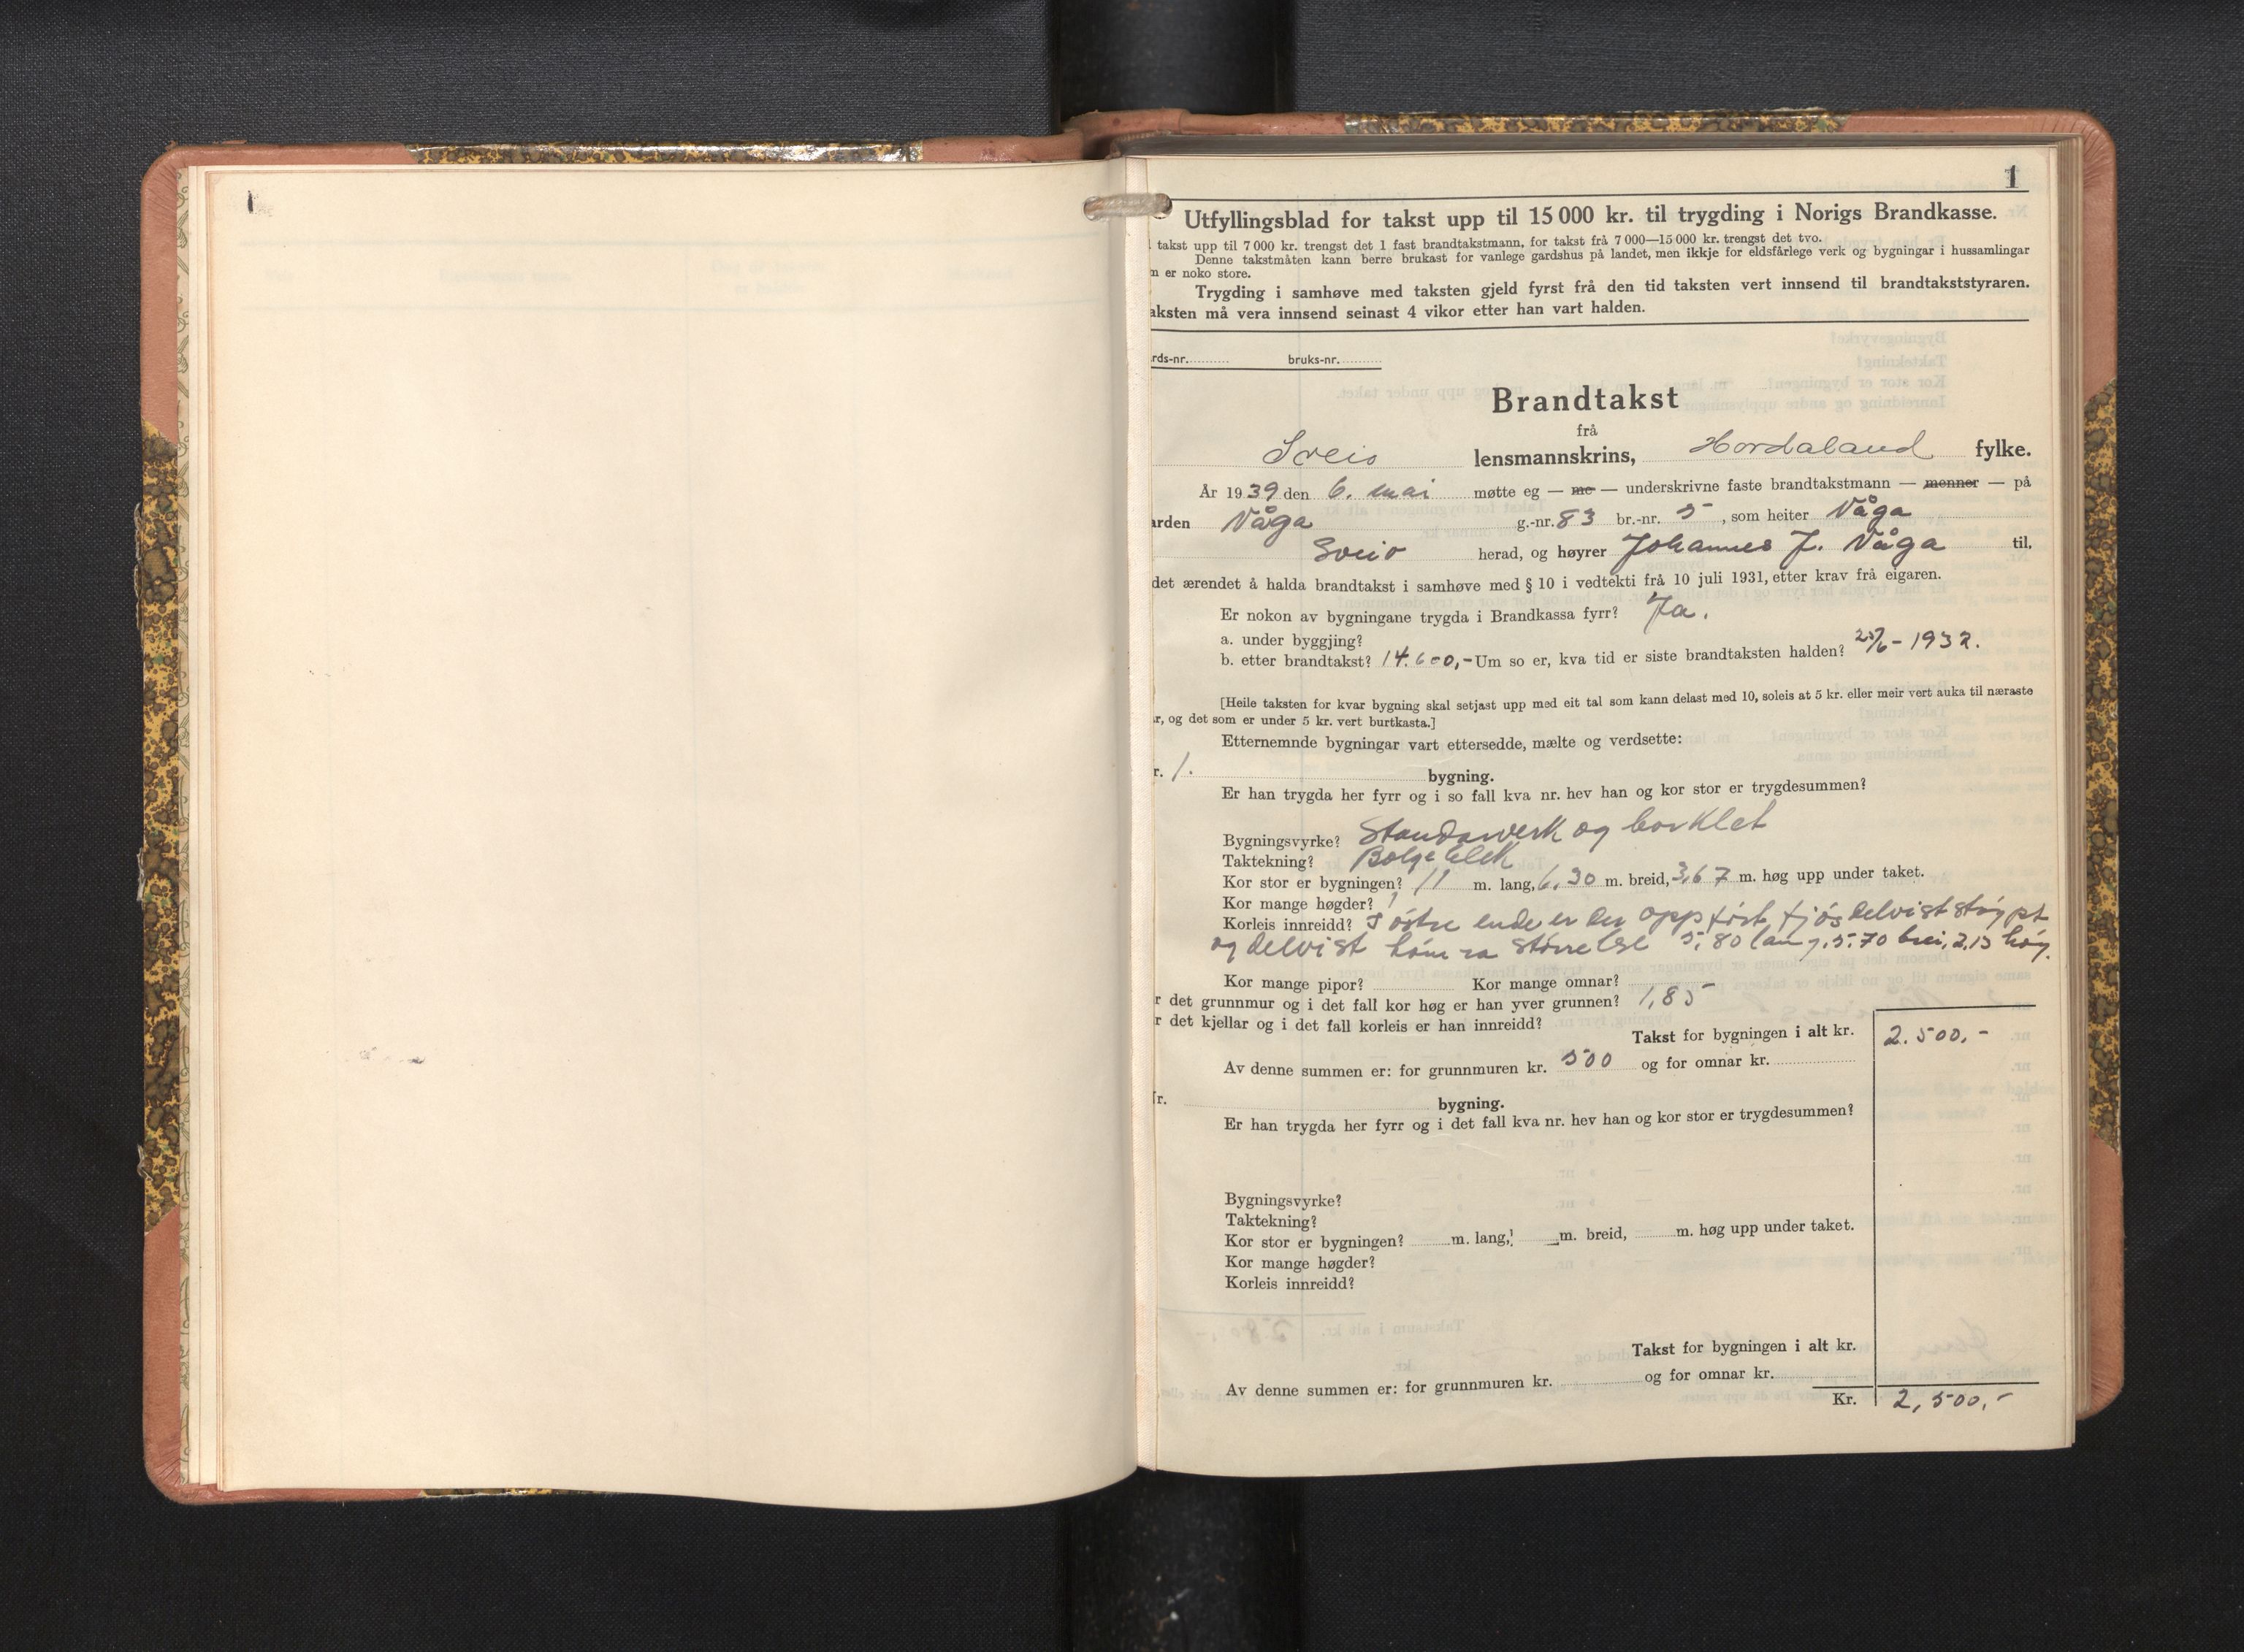 1
1
Utfyllingsblad for takst upp til 15 000 kr. til trygding i Norigs Brandkasse.
takst upp til 7 000 kr. trengst det 1 fast brandtakstmann, for takst frå 7 000—15 000 kr. trengst det tvo.
Denne takstmåten kann berre brukast for vanlege gardshus på landet, men ikkje for eldsfårlege verk og bygningar i hussamlingar
er noko store.
Trygding i samhøve med taksten gjeld fyrst frå den tid taksten vert innsend til brandtakststyraren.
aksten må vera innsend seinast 4 vikor etter han vart halden.
rds-nr. bruks-nr.
Brandtakst
frå
Sveio lensmannskrins, Hordaland fylke.
År 1939 den 6. mai møtte eg — me — underskrivne faste brandtakstmann — menner — på
arden Våga g.-nr. 83 br.-nr. 5, som heiter Våga
Sveio herad, og høyrer Johannes J. Våga til.
det ærendet å halda brandtakst i samhøve med § 10 i vedtekti frå 10 juli 1931, etter krav frå eigaren.
Er nokon av bygningane trygda i Brandkassa fyrr? Ja.
a. under byggjing?
b. etter brandtakst? 14.600,- Um so er, kva tid er siste brandtaksten halden? /6-1932.
[Heile taksten for kvar bygning skal setjast upp med eit tal som kann delast med 10, soleis at 5 kr. eller meir vert auka til næraste
r, og det som er under 5 kr. vert burtkasta.]
Etternemnde bygningar vart ettersedde, mælte og verdsette:
r. 1. bygning.
Er han trygda her fyrr og i so fall kva nr. hev han og kor stor er trygdesummen?
Bygningsvyrke? Standarverk og borklet
Taktekning? Bølgeblek
Kor stor er bygningen? 11 m. lang, 6,30 m. breid, 3,67 m. høg upp under taket.
Kor mange høgder? 1
Korleis innreidd? I östre ende er der oppfört fjös delvist stöypt
og delvist störrelse 5,80 lang, 5,70 brei, 2,15 höy.
Kor mange pipor? Kor mange omnar?
r det grunnmur og i det fall kor høg er han yver grunnen? 1,85
r det kjellar og i det fall korleis er han innreidd?
Takst for bygningen i alt kr. 2.500,-
Av denne summen er: for grunnmuren kr. 500 og for omnar kr.
r. bygning.
Er han trygda her fyrr og i det fall kva nr. hev han og kor stor er trygdesummen?
Bygningsvyrke?
Taktekning?
Kor stor er bygningen? m. lang, m. breid, m. høg upp under taket.
Kor mange høgder?
Korleis innreidd?
Takst for bygningen i alt kr.
Av denne summen er: for grunnmuren kr. og for omnar kr.
Kr. 2,500,-